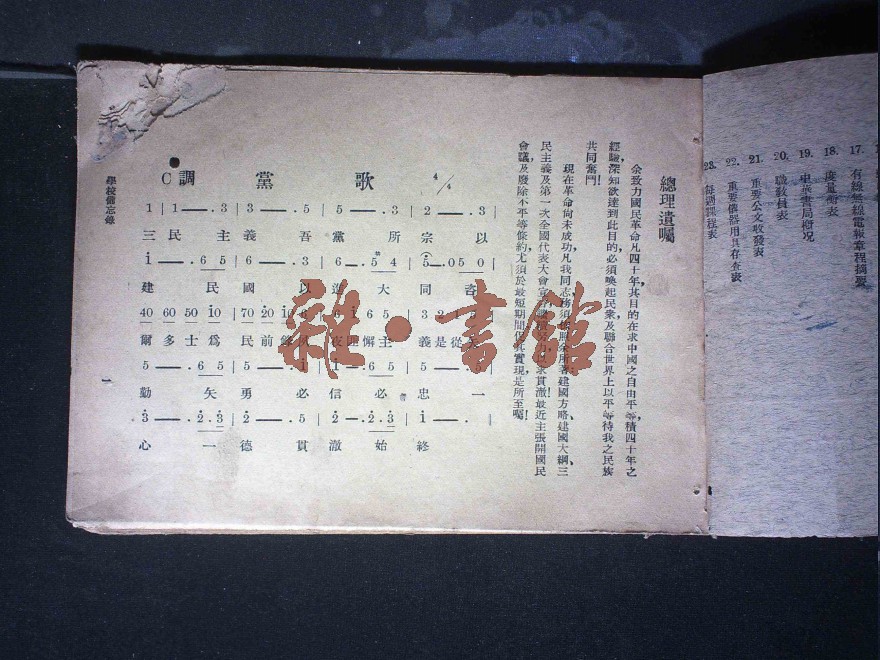 17. 有線無線電報章程摘要
18. 度量衡表
19. 中華書局概況
20. 職敎員表
21. 重要公文收發表
22. 重要儀器用具存查表
23. 每週課程表
總理遺囑
余致力國民革命凡四十年，其目的在求中國之自由平等，積四十年之
經驗，深知欲達到此目的，必須喚起民衆及聯合世界上以平等待我之民族
共同奮鬥！
現在革命尙未成功，凡我同志務須依照余所著建國方略、建國大綱、三
民主義及第一次全國代表大會宣言，繼續努力，以求貫澈，最近主張開國民
會議及廢除不平等條約，尤須於最短期間促其實現，是所至囑！
C調 黨歌 4/4
三民主義吾黨所宗以
建民國以進大同咨
爾多士爲民前鋒夙夜匪懈主義是從矢
勤矢勇必信必忠一
心一德貫澈始終
學校備忘錄
一
雜·書館